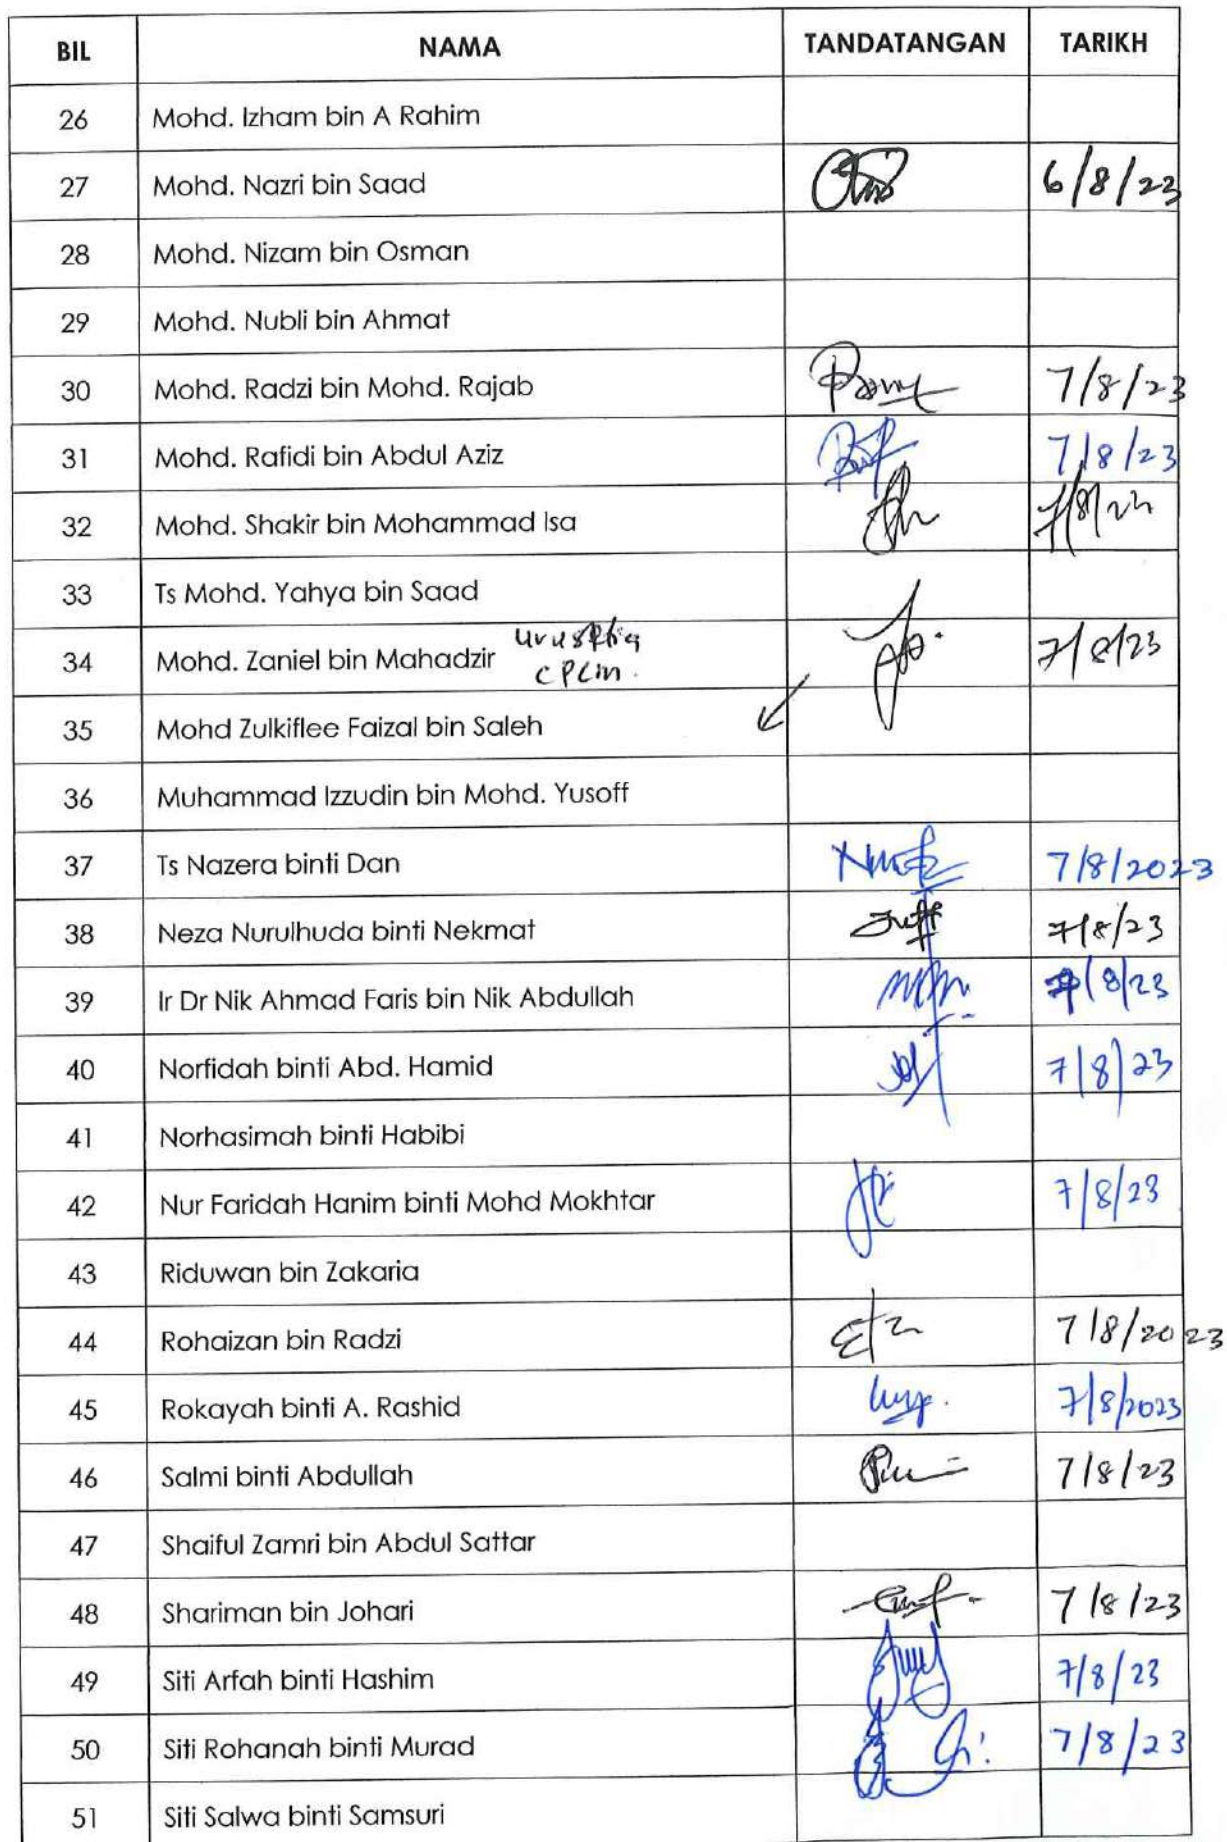 BIL NAMA TANDATANGAN TARIKH
26 Mohd. Izham bin A Rahim
27 Mohd. Nazri bin Saad 6/8/23
28 Mohd. Nizam bin Osman
29 Mohd. Nubli bin Ahmat
30 Mohd. Radzi bin Mohd. Rajab 7/8/23
31 Mohd. Rafidi bin Abdul Aziz 7/8/23
32 Mohd. Shakir bin Mohammad Isa
33 Ts Mohd. Yahya bin Saad
34 Mohd. Zaniel bin Mahadzir 7/8/23
35 Mohd Zulkiflee Faizal bin Saleh
36 Muhammad Izzudin bin Mohd. Yusoff
37 Ts Nazera binti Dan 7/8/2023
38 Neza Nurulhuda binti Nekmat 7/8/23
39 Ir Dr Nik Ahmad Faris bin Nik Abdullah 7/8/23
40 Norfidah binti Abd. Hamid 7/8/23
41 Norhasimah binti Habibi
42 Nur Faridah Hanim binti Mohd Mokhtar 7/8/23
43 Riduwan bin Zakaria
44 Rohaizan bin Radzi 7/8/2023
45 Rokayah binti A. Rashid 7/8/2023
46 Salmi binti Abdullah 7/8/23
47 Shaiful Zamri bin Abdul Sattar
48 Shariman bin Johari 7/8/23
49 Siti Arfah binti Hashim 7/8/23
50 Siti Rohanah binti Murad 7/8/23
51 Siti Salwa binti Samsuri